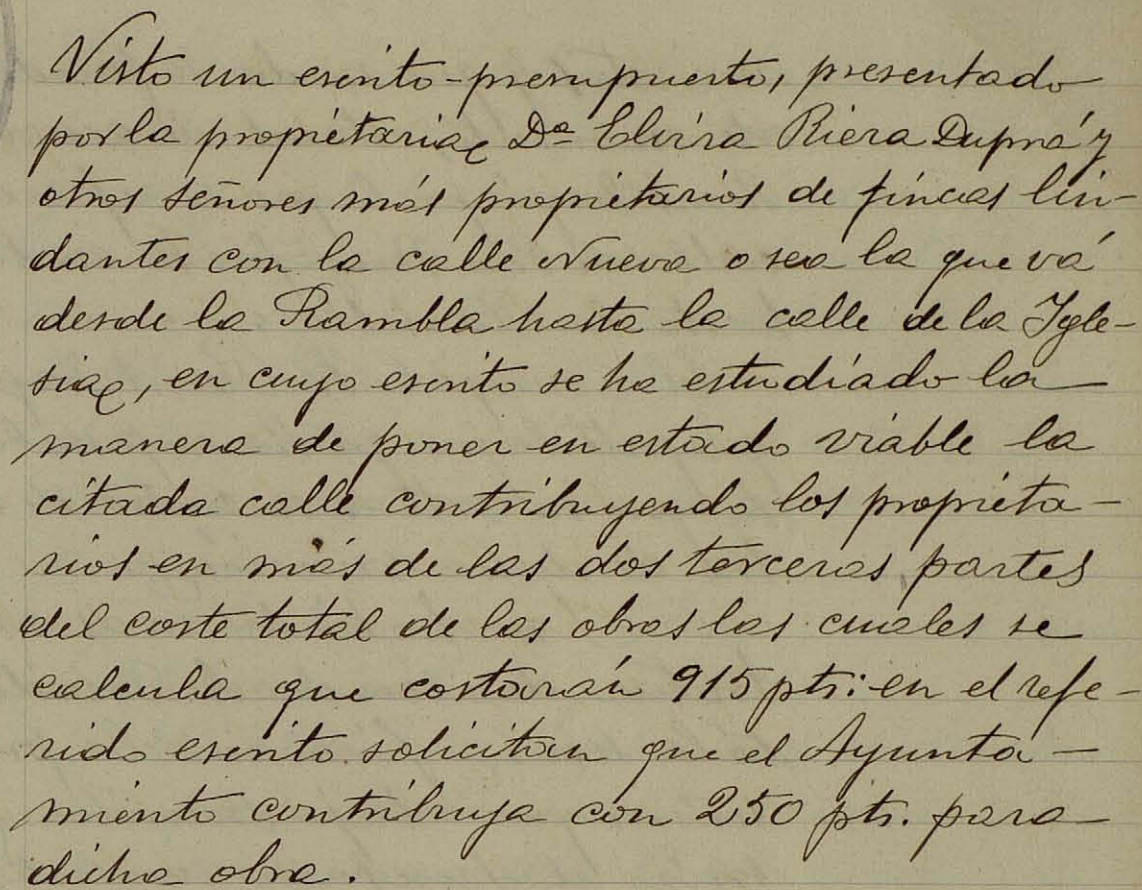 Visto un escrito-presupuesto, presentado
por la propietaria Dª Elvira Riera Duprá y
otros señores más propietarios de fincas lin-
dantes con la calle Nueva o sea la que vá
desde la Rambla hasta la calle de la Igle-
sia, en cuyo escrito se ha estudiado la
manera de poner en estado viable la
citada calle contribuyendo los propieta-
rios en más de las dos terceras partes
del coste total de las obras las cuales se
calcula que costarán 915 pts: en el refe-
rido escrito solicitan que el Ayunta-
miento contribuya con 250 pts. para
dicha obra.